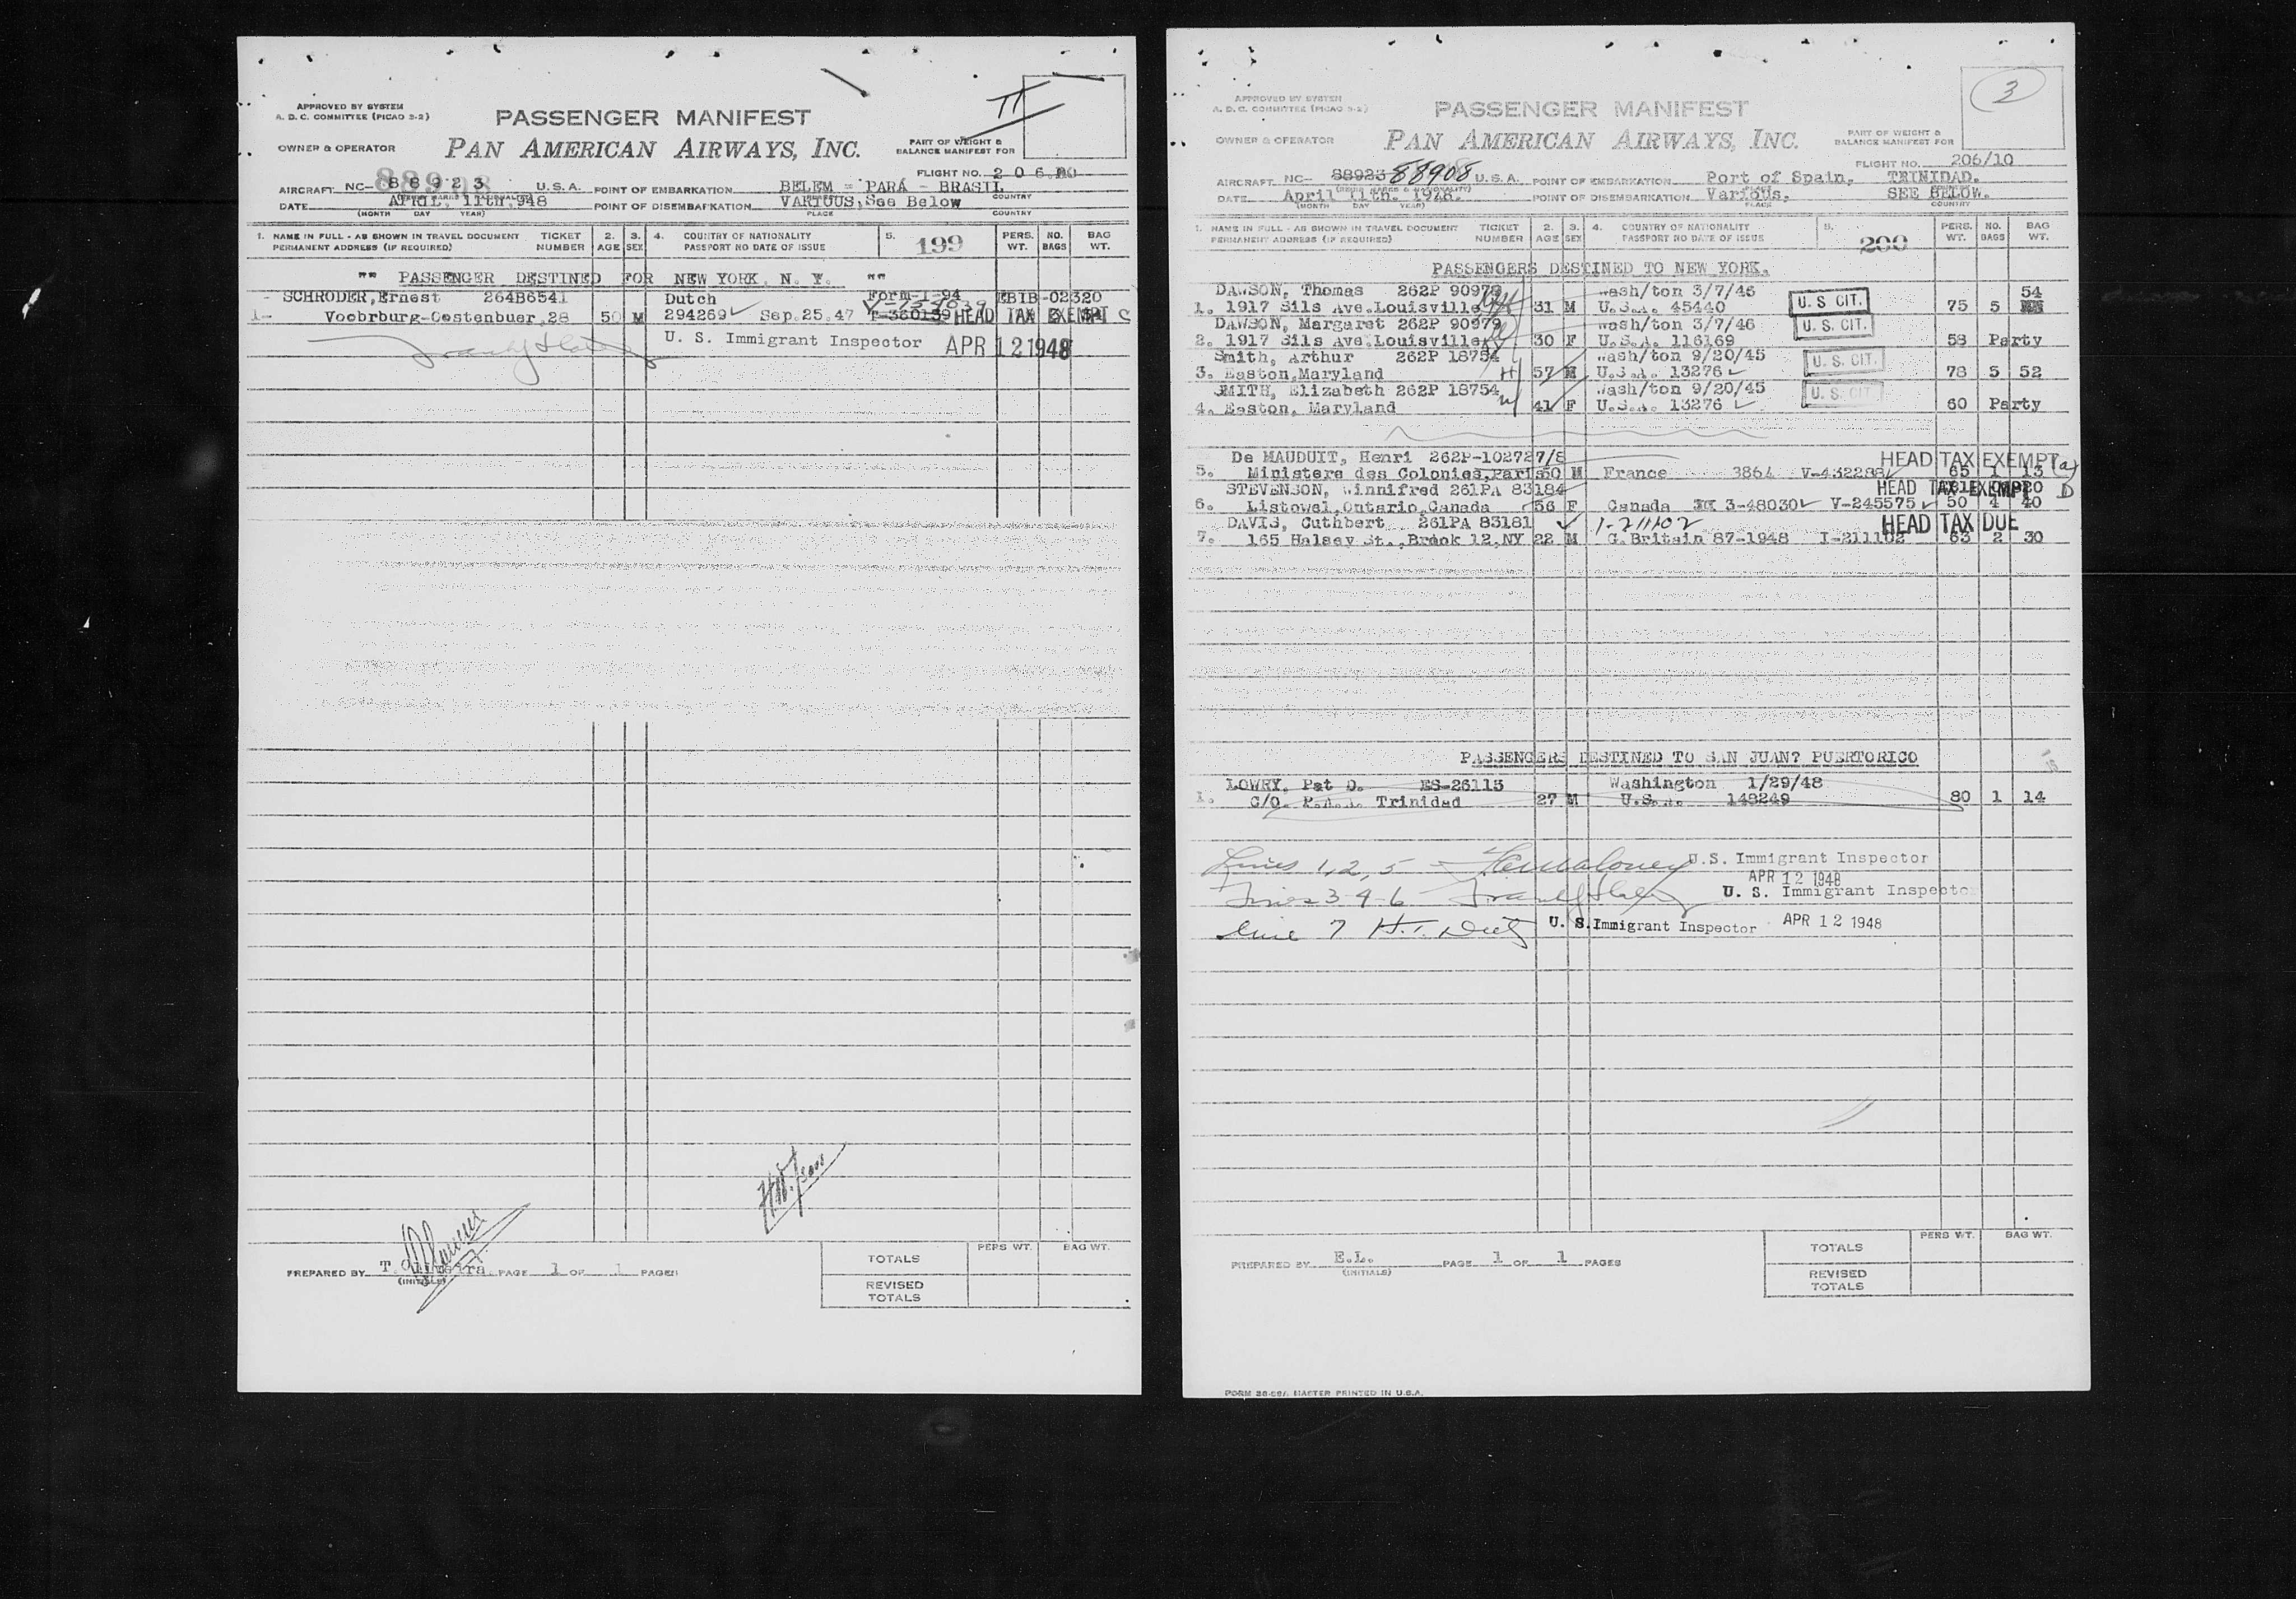 APPROVED BY SYSTEM
A. D. C. COMMITTEE (PICAO 3-2)
PASSENGER MANIFEST
OWNER & OPERATOR
PAN AMERICAN AIRWAYS, INC.
PART OF WEIGHT &
BALANCE MANIFEST FOR
FLIGHT NO.
AIRCRAFT NC- 88923 U.S.A. POINT OF EMBARKATION BELEM - PARÁ - BRASIL
DATE APRIL, 11th,948 POINT OF DISEMBARKATION VARIOUS, See Below
(MONTH DAY YEAR) PLACE COUNTRY
1. NAME IN FULL - AS SHOWN IN TRAVEL DOCUMENT TICKET 2. 3. 4. COUNTRY OF NATIONALITY 5. 199 PERS. NO. BAG
PERMANENT ADDRESS (IF REQUIRED) NUMBER AGE SEX PASSPORT NO DATE OF ISSUE WT. BAGS WT.
"" PASSENGER DESTINED FOR NEW YORK. N. Y. ""
SCHRODER,Ernest 264B6541 Dutch Form-I-94 EBIB-02320
1- Voobrburg-Oostenbuer,28 50 M 294269 Sep.25.47 HEAD TAX EXEMPT C
U. S. Immigrant Inspector APR 12 1948
PREPARED BY PAGE 1 OF 1 PAGES
(INITIALS)
TOTALS PERS WT. BAG WT.
REVISED
TOTALS
3
APPROVED BY SYSTEM
A. D. C. COMMITTEE (PICAO 3-2)
PASSENGER MANIFEST
OWNER & OPERATOR
PAN AMERICAN AIRWAYS, INC.
PART OF WEIGHT &
BALANCE MANIFEST FOR
FLIGHT NO. 206/10
AIRCRAFT NC- 88923 88908 U.S.A. POINT OF EMBARKATION Port of Spain, TRINIDAD.
DATE April 11th. 1948. POINT OF DISEMBARKATION Various. SEE BELOW.
(MONTH DAY YEAR) PLACE COUNTRY
1. NAME IN FULL - AS SHOWN IN TRAVEL DOCUMENT TICKET 2. 3. 4. COUNTRY OF NATIONALITY 5. 200 PERS. NO. BAG
PERMANENT ADDRESS (IF REQUIRED) NUMBER AGE SEX PASSPORT NO DATE OF ISSUE WT. BAGS WT.
PASSENGERS DESTINED TO NEW YORK.
DAWSON, Thomas 262P 90979 Wash/ton 3/7/46 U. S CIT. 54
1. 1917 Sils Ave.Louisville 31 M U.S.A. 45440 75 5
DAWSON, Margaret 262P 90979 Wash/ton 3/7/46 U. S. CIT.
2. 1917 Sils Ave.Louisville 30 F U.S.A. 116169 58 Party
Smith, Arthur 262P 18754 Wash/ton 9/20/45 U. S. CIT.
3. Easton,Maryland 57 M U.S.A. 13276 78 5 52
SMITH, Elizabeth 262P 18754 Wash/ton 9/20/45 U. S. CIT.
4. Easton, Maryland 41 F U.S.A. 13276 60 Party
De MAUDUIT, Henri 262P-102727/8 HEAD TAX EXEMPT (a)
5. Ministere des Colonies,Paris 50 M France 3864 V-432288 65 1 13
STEVENSON, Winnifred 261PA 83184 HEAD TAX EXEMPT D
6. Listowel,Ontario,Canada 56 F Canada 3-48030 V-245575 50 4 40
DAVIS, Cuthbert 261PA 83181 1-211102 HEAD TAX DUE
7. 165 Halsey St.,Brook 12,NY 22 M G.Britain 87-1948 I-211102 63 2 30
PASSENGERS DESTINED TO SAN JUAN? PUERTORICO
LOWRY. Pat D. ES-26113 Washington 1/29/48
1. C/O. P.A.A. Trinidad 27 M U.S.A. 148249 80 1 14
Lines 1, 2, 5 U.S. Immigrant Inspector
APR 12 1948
Lines 3-4-6 U. S. Immigrant Inspector
Line 7 U. S. Immigrant Inspector APR 12 1948
PREPARED BY E.L. PAGE 1 OF 1 PAGES
(INITIALS)
TOTALS PERS WT. BAG WT.
REVISED
TOTALS